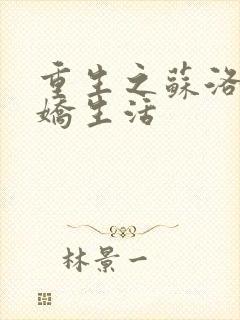 重生之蘇洛
嬌生活
林景一